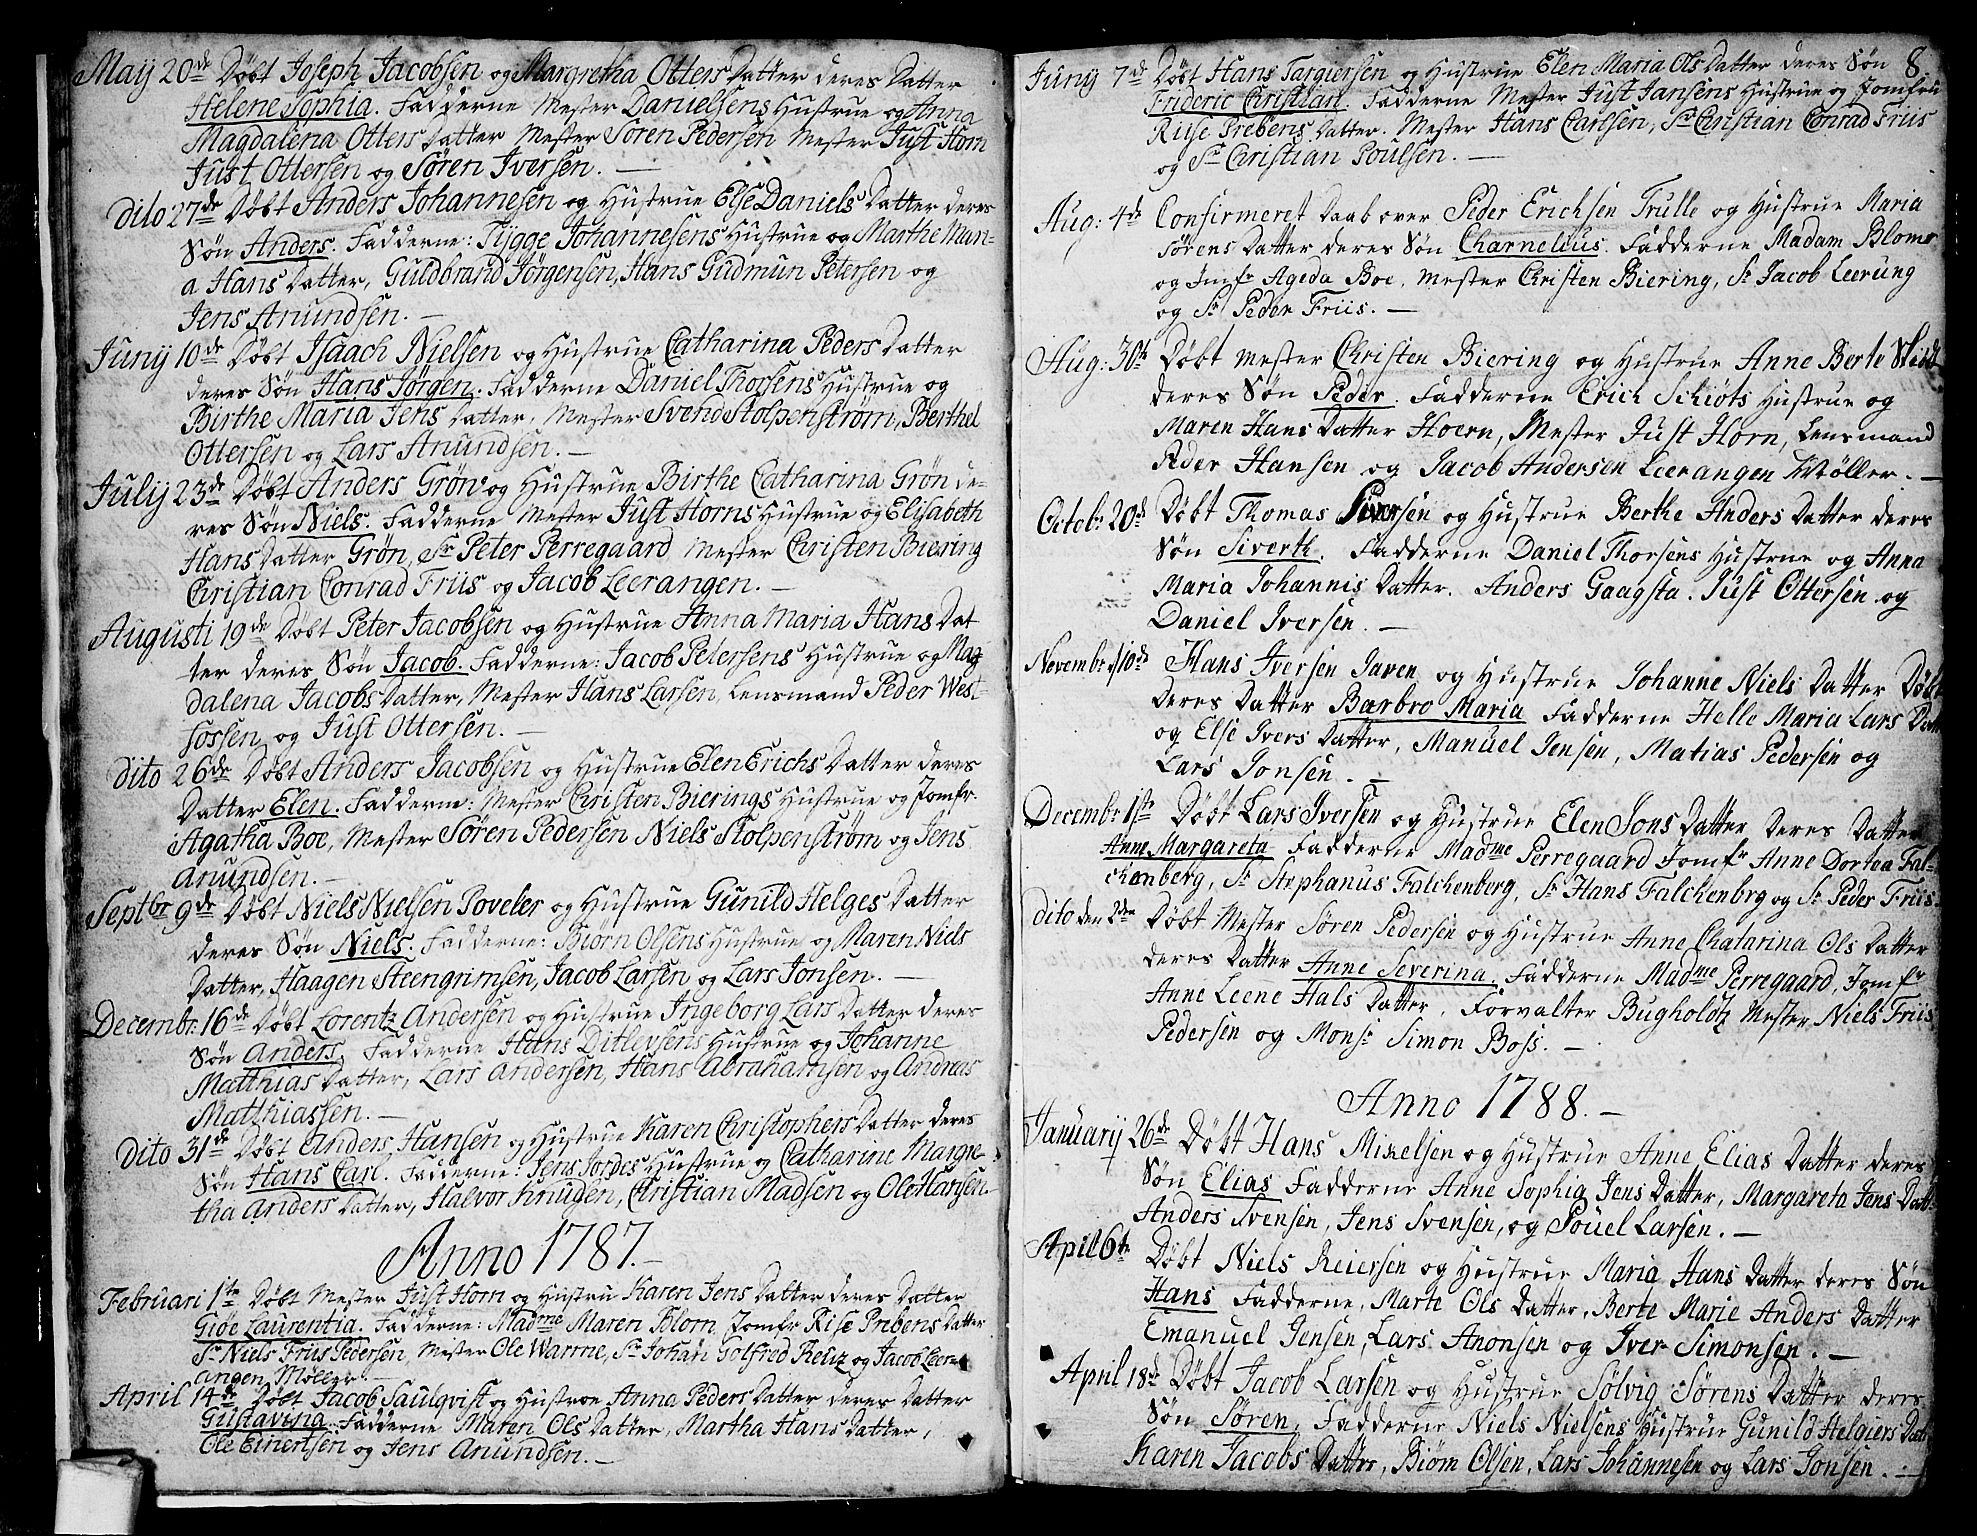 Maij 20de Døbt Joseph Jacobsen og Margretha Otters Datter deres Datter
Helene Sophia. Fadderne Mester Danielsens Hustrue og Anna
Magdalena Otters Datter Mester Sören Pedersen Mester Just Horn
Just Ottersen og Søren Iversen. —
dito 27de Døbt Anders Johannesen og Hustrue Else Daniels Datter deres
Søn Anders. Fadderne: Tÿgge Johannesens Hustrue og Marthe Mari-
a Hans Datter, Guldbrand Jörgensen, Hans Gudmun Petersen og
Jens Anundsen. —
Junÿ 10de Døbt Isaach Nielsen og Hustrue Catharina Peders Datter
deres Søn Hans Jörgen. Fadderne Daniel Thorsens Hustrue og
Birthe Maria Jens Datter, Mester Svend Stolpenström, Berthel
Ottersen og Lars Anundsen. —
Julij 23de Døbt Anders Grön og Hustrue Birthe Catharina Grön de-
res Søn Niels. Fadderne Mester Just Horns Hustrue og Elisabeth
Hans Datter Grön, Sr Peter Perregaard Mester Christen Biering
Christian Conrad Friis og Jacob Leerangen. —
Augusti 19de Døbt Peter Jacobsen og Hustrue Anna Maria Hans Dat
ter deres Søn Jacob. Fadderne: Jacob Petersens Hustrue og Mag-
dalena Jacobs Datter, Mester Hans Larsen, Lensmand Peder West-
fossen og Just Ottersen. —
dito 26de Døbt Anders Jacobsen og Hustrue Elen Erichs Datter deres
Datter Elen. Fadderne: Mester Christen Bierings Hustrue og Jomfr.
Agatha Boe, Mester Sören Pedersen Niels Stolpenström og Jens
Anundsen. —
Septbr 9de Døbt Niels Nielsen Poveler og Hustrue Gunild Helges Datter
deres Søn Niels. Fadderne: Biörn Olsens Hustrue og Maren Niels
Datter, Haagen Steengrimsen, Jacob Larsen og Lars Jonsen. —
Decembr. 16de Døbt Lorentz Andersen og Hustrue Ingeborg Lars Datter deres
Søn Anders. Fadderne Hans Ditlevsens Hustrue og Johanne
Matthias Datter, Lars Andersen, Hans Abrahamsen og Andreas
Matthiassen. —
dito 31de Døbt Anders Hansen og Hustrue Karen Christophers Datter deres
Søn Hans Carl. Fadderne: Jens Jordes Hustrue og Catharine Margre-
tha Anders Datter, Halvor Knudsen, Christian Madsen og Ole Hansen.
Anno 1787. —
Februari 1te Døbt Mester Just Horn og Hustru Karen Jens Datter deres Datter
Giöe Laurentia. Fadderne: Madme Maren Blom, Jomfr Rise Prebens Datter
Sr Niels Friis Pedersen, Mester Ole Warme, Sr Johan Golfred Reuz og Jacob Leer-
angen Møller. —
April 14de Døbt Jacob Saulqvist og Hustroe Anna Peders Datter deres Datter
Gustaviria. Fadderne Maren Ols Datter, Martha Hans Datter,
Ole Einertsen og Jens Anundsen. —
8
Junÿ 7de Døbt Hans Targiersen og Hustrue Elen Maria Ols Datter deres Søn
Frideric Christian. Fadderne Mester Just Jansens Hustrue og Jomfru
Riise Prebens Datter. Mester Hans Carlsen, Sr Christian Conrad Friis
og Sr Christian Poulsen. —
Aug: 4de Confirmeret Daab over Peder Erichsen Trulle og Hustrue Maria
Sørens Datter deres Søn Charnelius. Fadderne Madam Bloms
og Jmfr Ageda Boe, Mester Christen Biering, Sr Jacob Leerung
og Sr Peder Friis. —
Aug: 30te Døbt Mester Christen Biering og Hustrue Anne Berte
deres Søn Peder. Fadderne Erich Schiöts Hustrue og
Maren Hans Datter Hoern, Mester Just Horn, Lensmand
Peder Hansen og Jacob Andersen Leerangen Møller. —
Octobr 20de Døbt Thomas Siversen og Hustrue Berthe Anders Datter deres
Søn Siverth. Fadderne Daniel Thorsens Hustrue og Anna
Maria Johannis Datter. Anders Gaagsta. Just Ottersen og
Daniel Iversen. —
Novembr. 10de Hans Iversen Jaren og Hustrue Johanne Niels Datter Døbt
deres Datter Barbro Maria Fadderne Helle Maria Lars Datter
og Else Ivers Datter, Manuel Jensen, Matias Pedersen og
Lars Jonsen. —
Decembr 1ste Døbt Lars Iversen og Hustrue Elen Jons Datter Deres Datter
Anne Margareta Fadderne Madme Perregaard Jomfr Anne Dortea Fal-
chenberg, Sr Stephanus Falchenberg, Sr Hans Falchenbrg og Sr Peder Friis.
dito den 2den Døbt Mester Sören Pedersen og Hustrue Anne Chatarina Ols Datter
deres Datter Anne Severina, Fadderne Madme Perregaard, Jomfr
Anne Leene Hals Datter, Forvalter Bugholdtz Mester Niels Friis
Pedersen og Monsr Simon Boss. —
Anno 1788. —
Januarij 26de Døbt Hans Mixelsen og Hustrue Anne Elias Datter deres
Søn Elias Fadderne Anne Sophia Jens Datter, Margareta Jens Datt-
Anders Svensen, Jens Svensen, og Pouel Larsen. —
April 6te Døbt Niels Reiersen og Hustrue Maria Hans Datter deres Søn
Hans Fadderne, Marte Ols Datter, Berte Marie Anders Datter
Emanuel Jensen, Lars Anonsen og Iver Simonsen. —
April 18de Døbt Jacob Larsen og Hustrue Sölvig Sörens Datter deres
Søn Søren, Fadderne Niels Nielsens Hustrue Gunild Helgiers Datt
Karen Jacobs Datter, Biörn Olsen, Lars Johannesen og Lars Jonsen. —